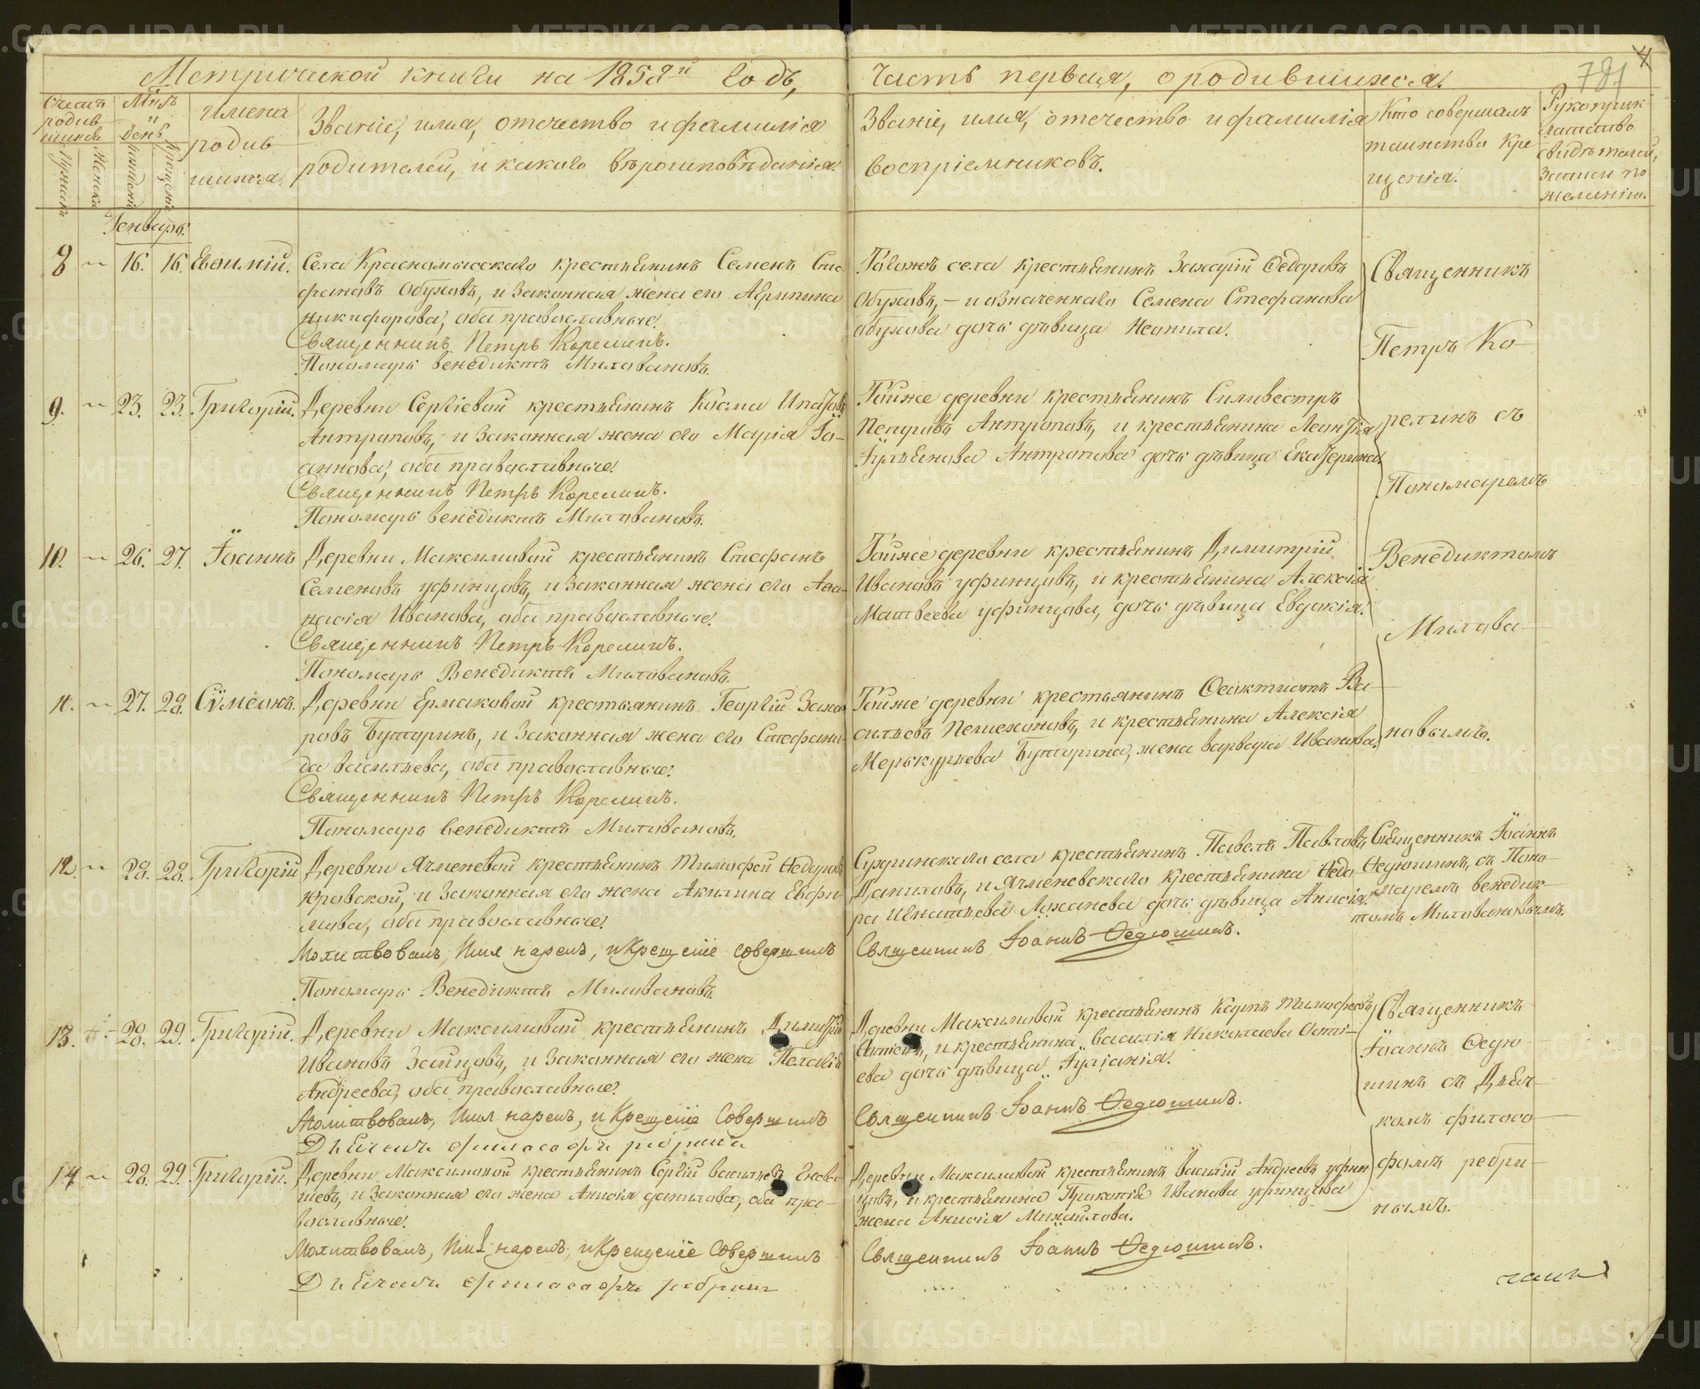 Метрической книги на 1858й годъ,
часть первая, о родившихся.
781
4
Счетъ родив-
шихся
Мужеска
Женска
Мѣсяцъ и день
рожденія
крещенія
Имена
родив-
шихся.
Званіе, имя, отечество и фамилія
родителей, и какого вѣроисповѣданія.
Званіе, имя, отечество и фамилія
воспріемниковъ.
Кто совершалъ
таинство кре-
щенія.
Рукоприк-
ладство
свидѣтелей
записи по
желанію.
Генварь.
8 16. 16. Евѳимій.
Села Краснояльского крестьянинъ Семенъ Сте-
фановъ Обуховъ, и законная жена его Агрипина
Никифорова, оба православные.
Священникъ Петръ Корелинъ.
Пономарь Венедиктъ Миловановъ.
Тогожъ села крестьянинъ Захарій Ѳедоровъ
Обуховъ, – и означеннаго Семена Стефанова
Обухова дочь дѣвица Неонила.
Священникъ
Петръ Ко-
9. 23. 23. Григорій.
Деревни Сергіевой крестьянинъ Косма Ипатовъ
Антроповъ, и законная жена его Марія Іо-
аннова, оба православные.
Священникъ Петръ Корелинъ.
Пономарь Венедиктъ Миловановъ.
Тойже деревни крестьянинъ Силивестръ
Антроповъ, и крестьянина Леонтія
Антропова дочь дѣвица Екатерина.
релинъ съ
Пономаремъ
10. 26. 27. Іоаннъ
Деревни Максимовой крестьянинъ Стефанъ
Семеновъ Уфинцовъ, и законная жена его Аѳа-
насія Иванова, оба православные.
Священникъ Петръ Корелинъ.
Пономарь Венедиктъ Миловановъ.
Тойже деревни крестьянинъ Димитрій
Ивановъ Уфинцовъ, и крестьянина Алексія
Матвеева Уфинцова, дочь дѣвица Евдокія.
Венедиктомъ
Милова-
11. 27. 28. Сѵмеонъ.
Деревни Ермаковой крестьянинъ Георгій Заха-
ровъ Бутаринъ, и законная жена его Стефани-
да Васильева, оба православные.
Священникъ Петръ Корелинъ.
Пономарь Венедиктъ Миловановъ.
Тойже деревни крестьянинъ Ѳеоктистъ Ва-
сильевъ Пешехоновъ, и крестьянина Алексія
Меркурьева Бутарина, жена Варвара Иванова.
новымъ.
12. 28. 28. Григорій
Деревни Ячменевой крестьянинъ Тимофей Ѳедоровъ
Юровской, и законная его жена Акилина Евфи-
мова, оба православные.
Молитвовалъ, Имя нарекъ, и Крещеніе совершилъ
Пономарь Венедиктъ Миловановъ.
села крестьянинъ Павелъ Павловъ
Даниловъ, и Ячменевскаго крестьянина Ѳедо-
ра Игнатьева дочь дѣвица Анисія.
Священникъ Іоаннъ Ѳедюшинъ.
Священникъ Іоаннъ
Ѳедюшинъ, съ Поно-
маремъ Венедик-
томъ Миловановымъ.
13. 28. 29. Григорій.
Деревни Максимовой крестьянинъ Димитрій
Ивановъ Зайцовъ, и законная его жена Пелагія
Андреева, оба православные.
Молитвовалъ, Имя нарекъ, и Крещеніе Совершилъ
Дьячекъ Филосоѳъ Ребринъ
Деревни Максимовой крестьянинъ Карпъ Тимофеевъ
и крестьянина Василія Николаева
ева дочь дѣвица Іуліанія.
Священникъ Іоаннъ Ѳедюшинъ.
Священникъ
Іоаннъ Ѳедю-
шинъ съ Дьяч-
комъ Филосо-
14 28. 29. Григорій.
Деревни Максимовой крестьянинъ Сергій Васильевъ
и законная его жена Анисія Данилова, оба пра-
вославные.
Молитвовалъ, Имя нарекъ, и Крещеніе Совершилъ
Дьячекъ Филосоѳъ Ребринъ
Деревни Максимовой крестьянинъ Василій Андреевъ Уфин-
цовъ, и крестьянина Прокопія Иванова Уфинцова
жена Анисія Михайлова.
Священникъ Іоаннъ Ѳедюшинъ.
фомъ Ребри-
нымъ.
METRIKI.GASO-URAL.RU